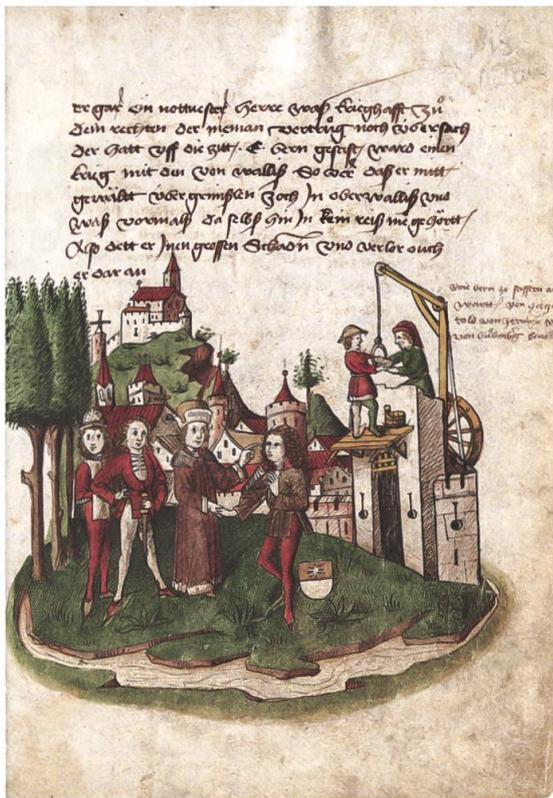 er gar ein nottuester herre waß krieghafft Zů
dem rechten der nieman vertrůg noch vbersach
Der hatt vff die zitt / E bern gestift / ward einen
krieg mit den von walliß So daß er mitt
gewalt über grimslen Zoch In ober walliß vnd
waß vormalß da selbß hin In kein reiß nie gehörtt /
Also dett er Inen grossen Schadn vnd verlor ouch
er dar an
wie bern ze stifften
von